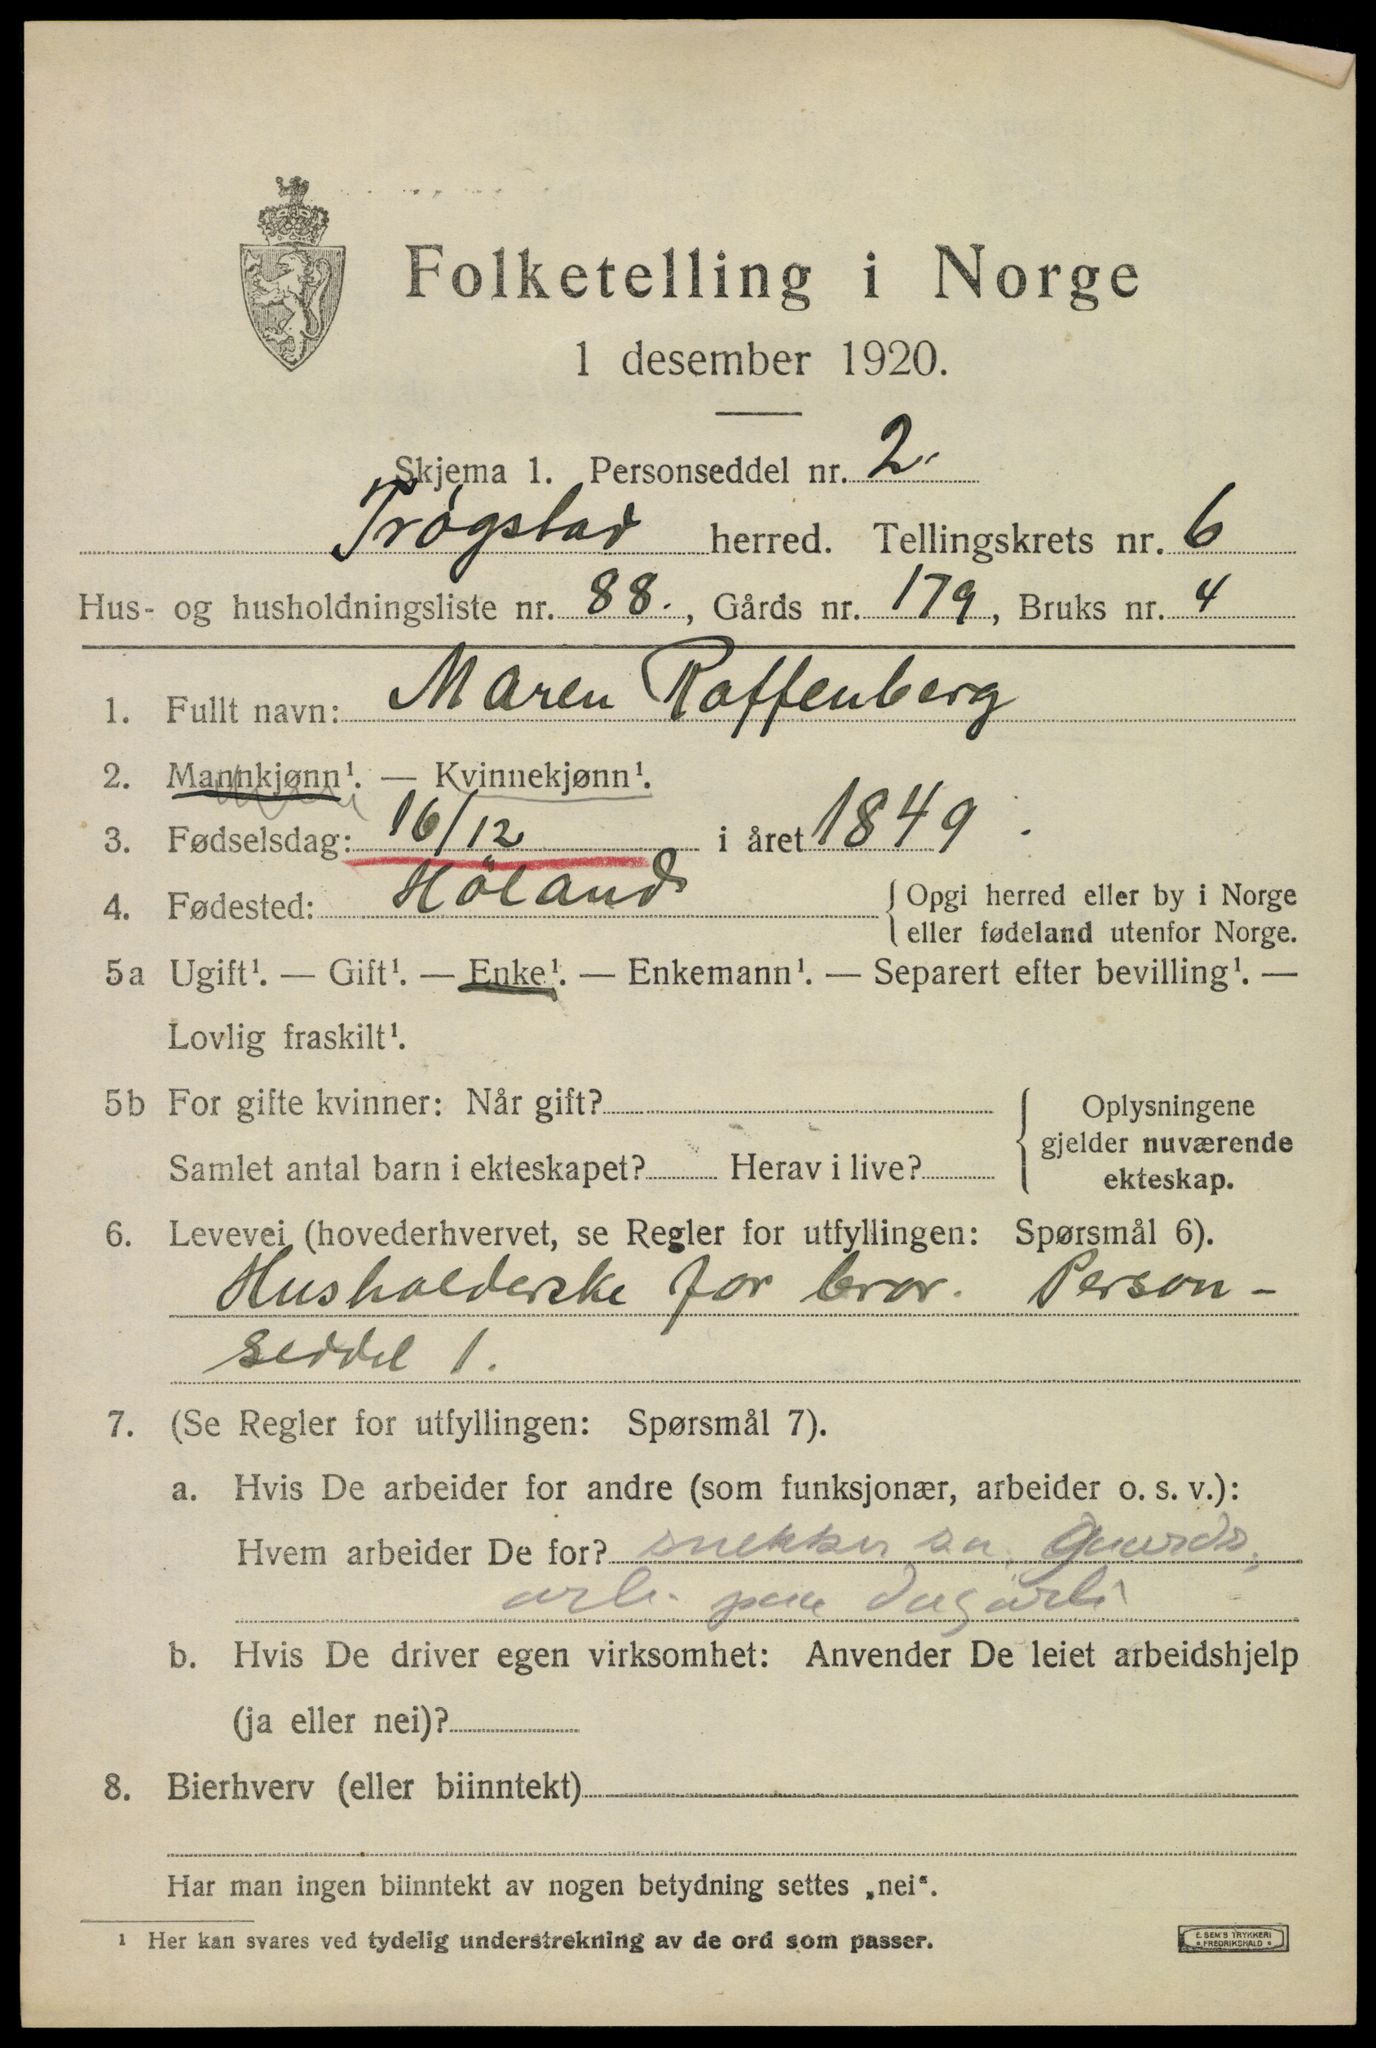 Folketelling i Norge
1 desember 1920.
Skjema 1. Personseddel nr. 2.
Trøgstad herred. Tellingskrets nr. 6
Hus- og husholdningsliste nr. 88., Gårds nr. 179, Bruks nr. 4
1. Fullt navn: Maren Raffenberg
2. Mannkjønn¹. — Kvinnekjønn¹.
3. Fødselsdag: 16/12 i året 1849.
4. Fødested: Høland { Opgi herred eller by i Norge
eller fødeland utenfor Norge.
5a Ugift¹. — Gift¹. — Enke¹. — Enkemann¹. — Separert efter bevilling¹. —
Lovlig fraskilt¹.
5b For gifte kvinner: Når gift? { Oplysningene
gjelder nuværende
Samlet antal barn i ekteskapet? Herav i live?
ekteskap.
6. Levevei (hovederhvervet, se Regler for utfyllingen: Spørsmål 6).
Husholderske for bror. Person-
seddel 1.
7. (Se Regler for utfyllingen: Spørsmål 7).
a. Hvis De arbeider for andre (som funksjonær, arbeider o. s. v.):
Hvem arbeider De for? snekker gaards
arb. paa dagarb
b. Hvis De driver egen virksomhet: Anvender De leiet arbeidshjelp
(ja eller nei)?
8. Bierhverv (eller biinntekt)
Har man ingen biinntekt av nogen betydning settes „nei“.
¹ Her kan svares ved tydelig understrekning av de ord som passer.
E. SEM'S TRYKKERI
• FREDRIKSHALD •